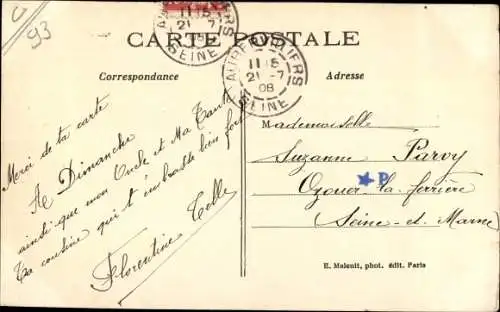 93
AUBERVILLIERS
11 15
21 -7
08
SEINE
AUBERVILLIERS
11 15
21 -7
08
SEINE
CARTE POSTALE
Correspondance
Adresse
Merci de ta carte
À Dimanche
ainsi que mon Oncle et Ma Tante
Ta cousine qui t'embrasse bien fort
Florentine
Mademoiselle
Suzanne Parvy
Ozouer-la-ferrière
Seine-et-Marne
P
E. Malcuit, phot. édit. Paris